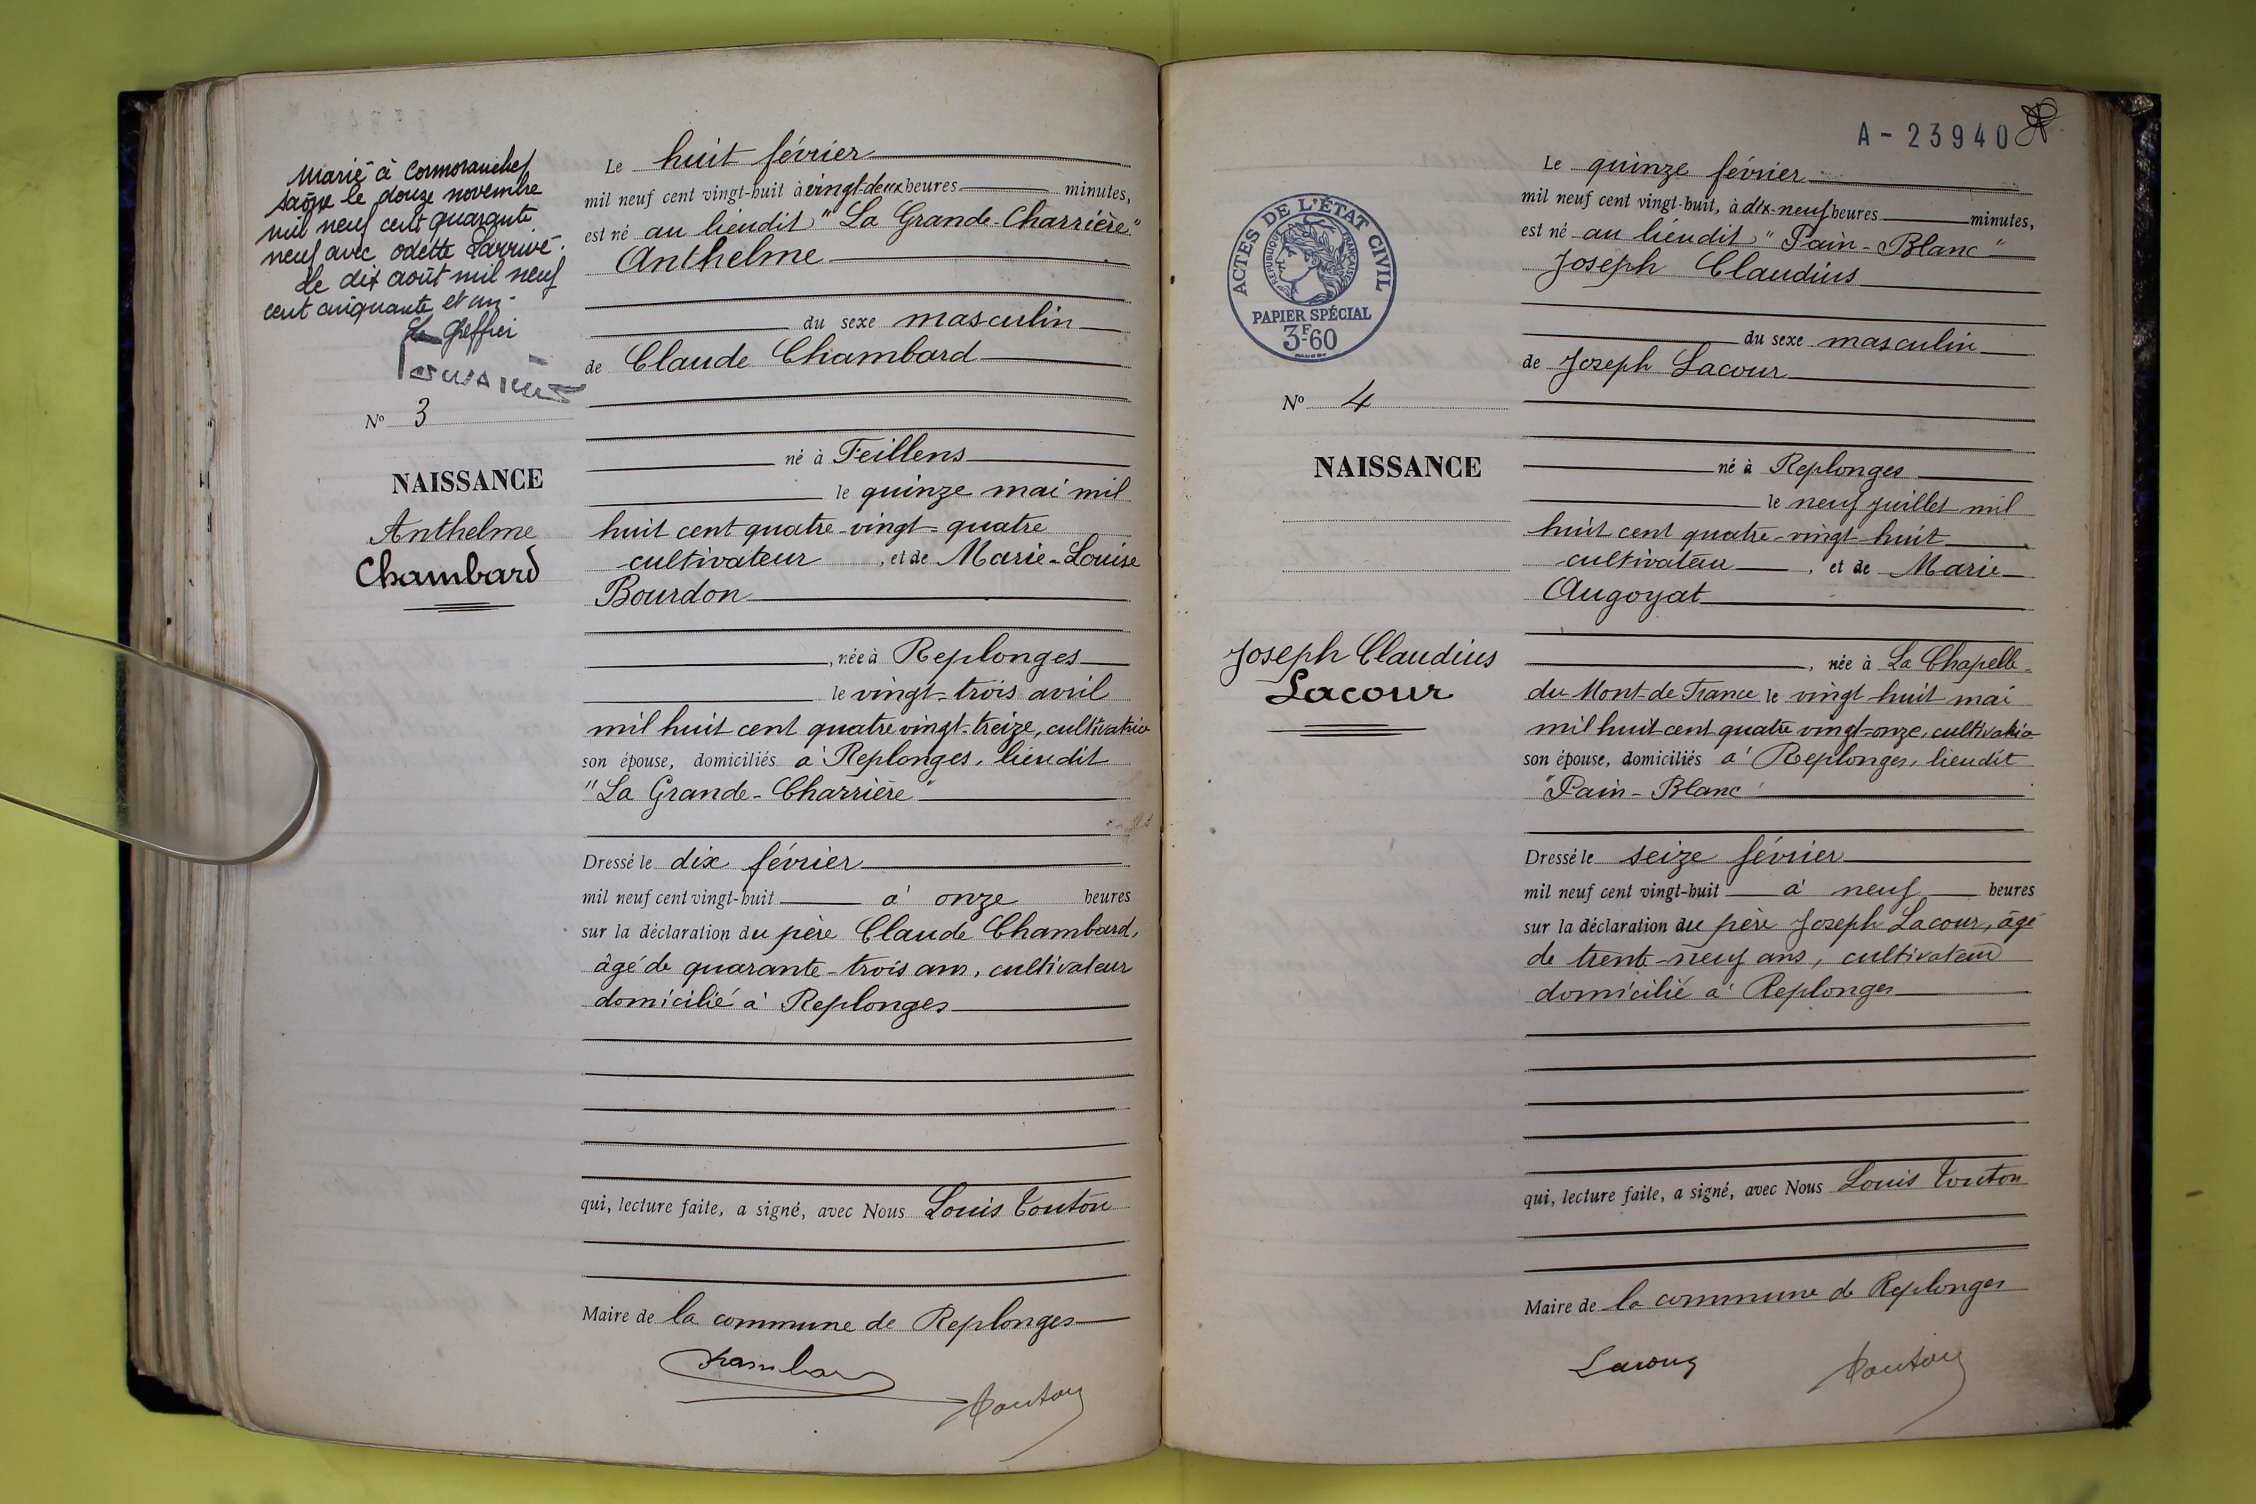 Marié à Cormoranche s/
Saône le douze novembre
mil neuf cent quarante
neuf avec odette Larrivé.
Le dix août mil neuf
cent cinquante et un.
Le Greffier
Nº 3
NAISSANCE
Anthelme
Chambard
Le huit février
mil neuf cent vingt-huit à vingt-deux heures minutes,
est né au lieudit "La Grande-Charrière"
Anthelme
du sexe masculin
de Claude Chambard
né à Feillens
le quinze mai mil
huit cent quatre-vingt-quatre
cultivateur, et de Marie-Louise
Bourdon
, née à Replonges
le vingt-trois avril
mil huit cent quatre vingt-treize, cultivatrice
son épouse, domiciliés à Replonges, lieudit
"La Grande-Charrière"
Dressé le dix février
mil neuf cent vingt-huit à onze heures
sur la déclaration du père Claude Chambard,
âgé de quarante-trois ans, cultivateur
domicilié à Replonges
qui, lecture faite, a signé, avec Nous Louis Touton
Maire de la commune de Replonges
Chambard
Touton
A-23940
ACTES DE L'ÉTAT CIVIL
RÉPUBLIQUE FRANÇAISE
PAPIER SPÉCIAL
3F.60
Nº 4
NAISSANCE
Joseph Claudius
Lacour
Le quinze février
mil neuf cent vingt-huit, à dix-neuf heures minutes,
est né au lieudit "Pain-Blanc"
Joseph Claudius
du sexe masculin
de Joseph Lacour
né à Replonges
le neuf juillet mil
huit cent quatre-vingt huit
cultivateur, et de Marie
Augoyat
, née à La Chapelle-
du Mont-de France le vingt huit mai
mil huit cent quatre vingt-onze, cultivatrice
son épouse, domiciliés à Replonges, lieudit
"Pain-Blanc"
Dressé le seize février
mil neuf cent vingt-huit à neuf heures
sur la déclaration du père Joseph Lacour, âgé
de trente-neuf ans, cultivateur
domicilié à Replonges
qui, lecture faite, a signé, avec Nous Louis Touton
Maire de la commune de Replonges
Lacour
Touton